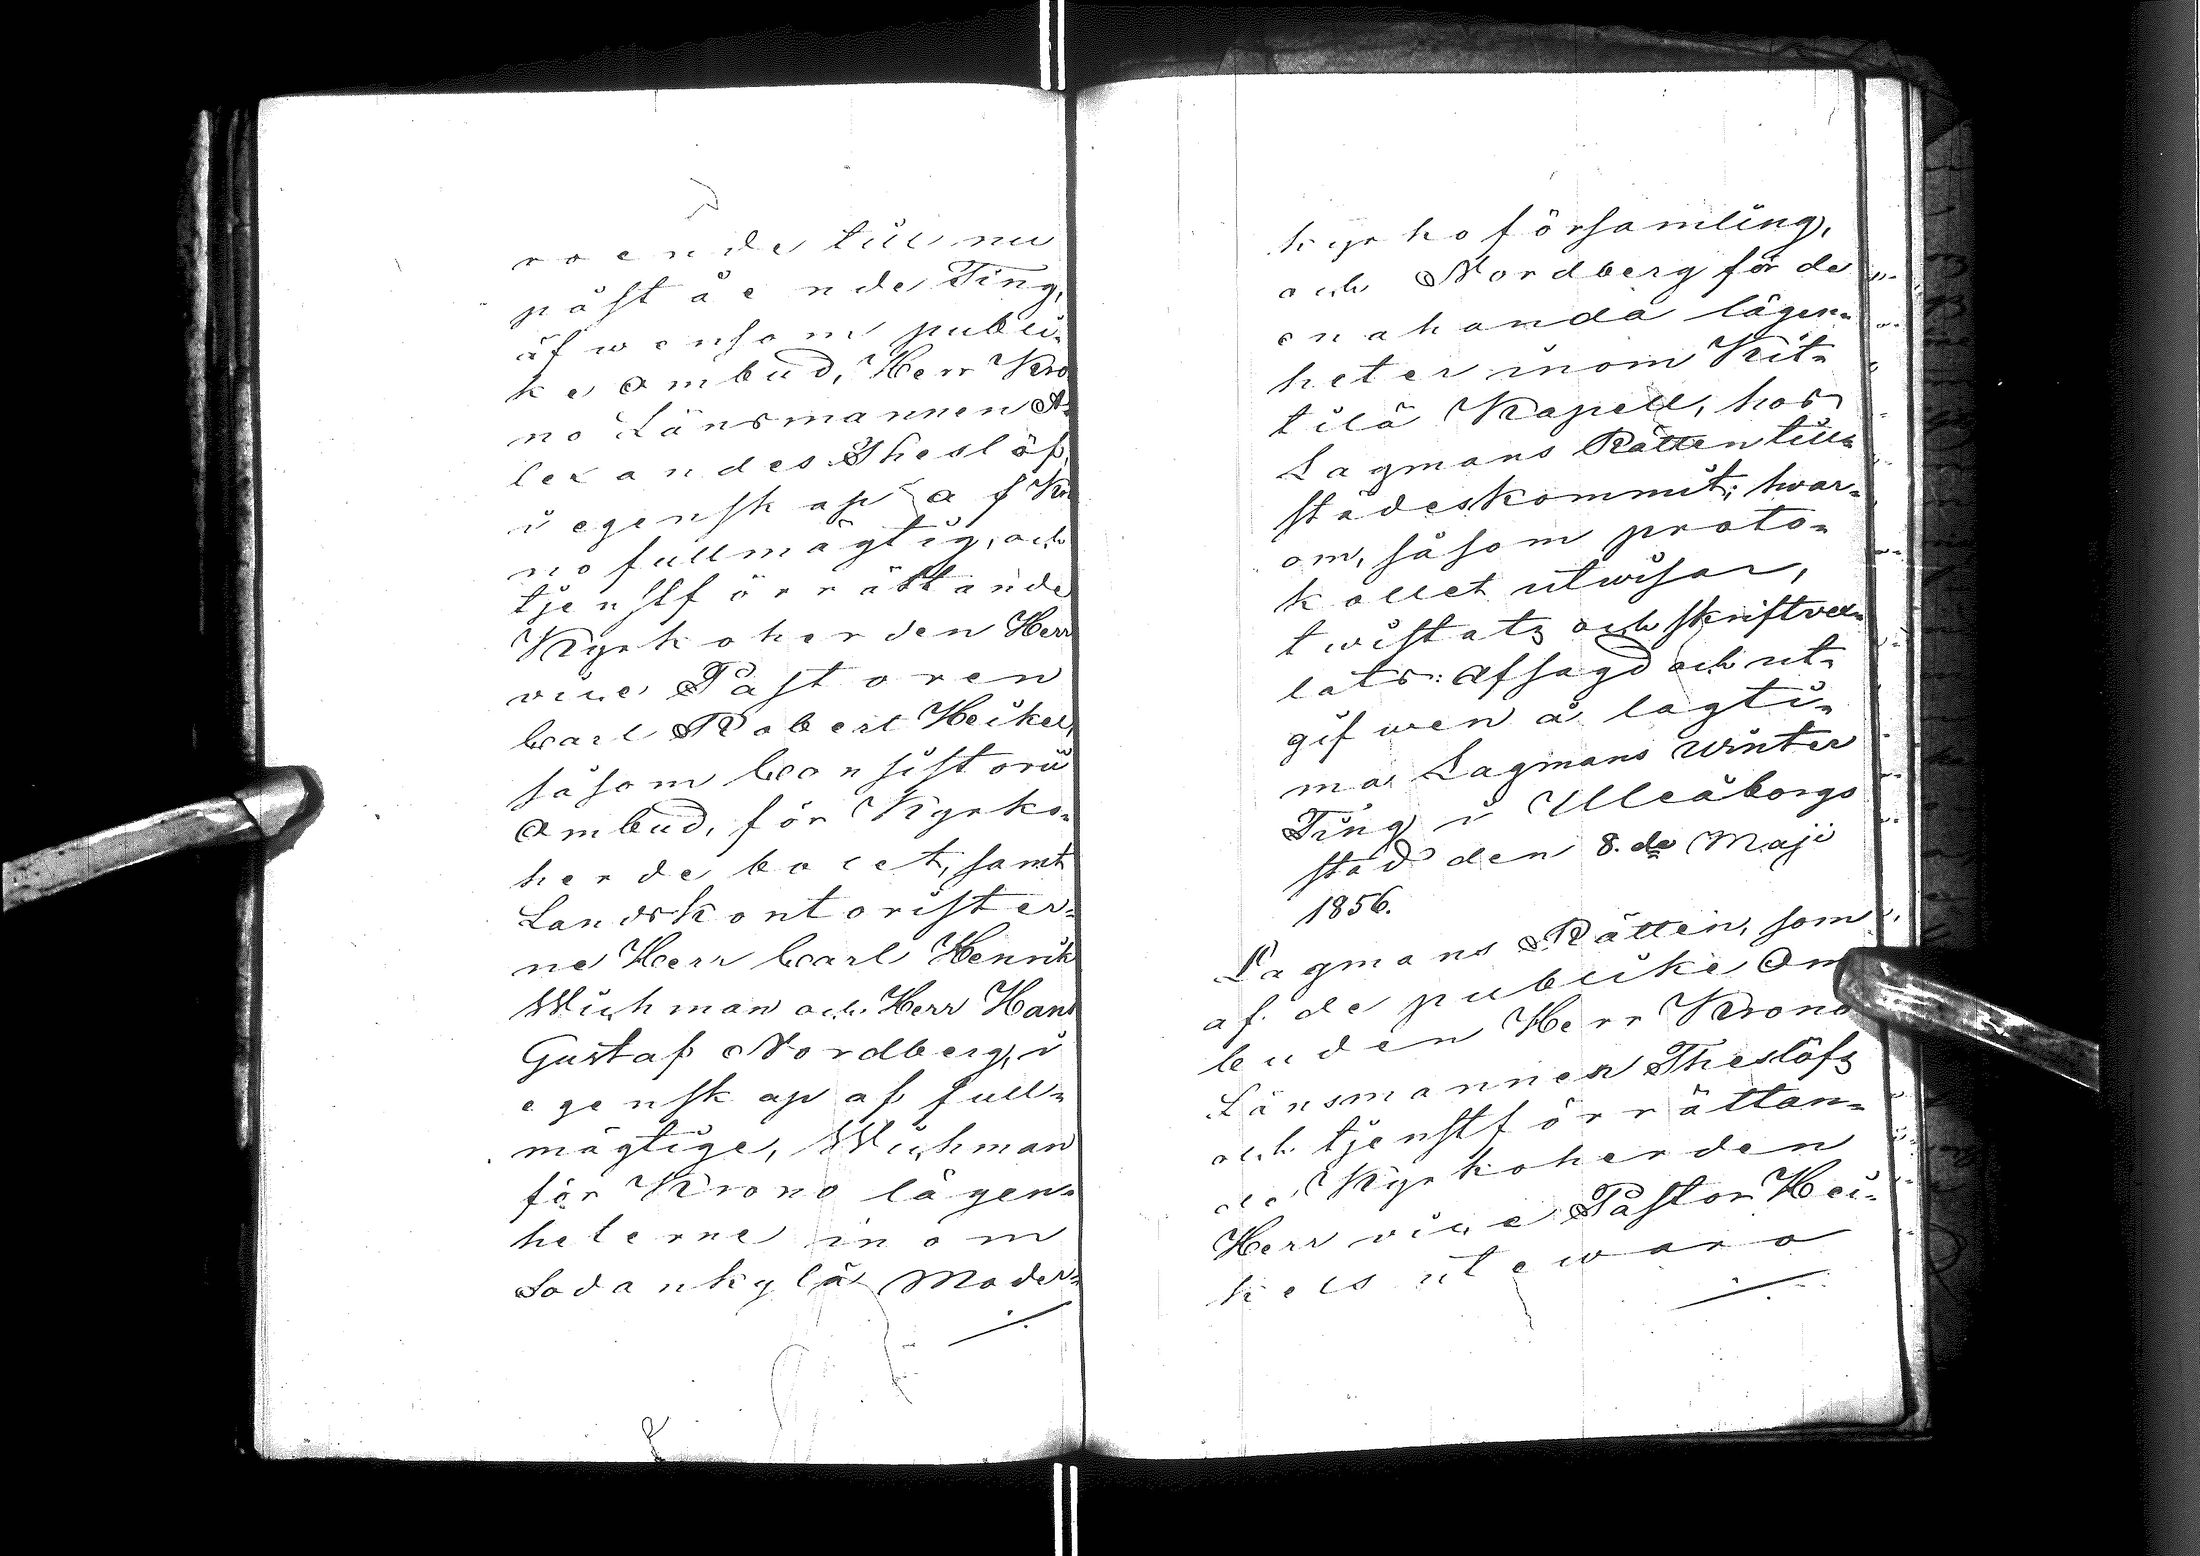 roende till nu
påstående Ting,
äfwensom publi-
ke Ombud, Herr Kro
no Länsmannen A-
lexander Theslöf,
i egenskap af Kro
no fullmägtig, och
tjenstförrättande
Kyrkoherden Herr
vice Pastoren
Carl Robert Heikel,
såsom Consistorii
Ombud, för Kyrko-
herde bolet, samt
Landskontorister-
ne Herr Carl Henrik
Wichman och Herr Hans
Gustaf Nordberg, i
egenskap af full-
mägtige, Wichman
för Krono lägen-
heterne inom
Sodankylä Moder-
./.
kyrkoförsamling,
och Nordberg för de
enahanda lägen-
heter inom Kit-
tilä Kapell, hos
Lagmans Rätten till-
städeskommit; hwar-
om, såsom proto-
kollet utwisar,
twistats och skriftvex-
lats: afsagd och ut-
gifwen å lagti-
ma Lagmans Winter
Ting i Uleåborgs
stad den 8.de Maji
1856.
Lagmans Rätten, som
af de publike Om
buden Herr Krono
Länsmannen Theslöfs
och tjenstförrättan-
de Kyrkoherden
Herr vice Pastor Hei-
kels utewaro
./.